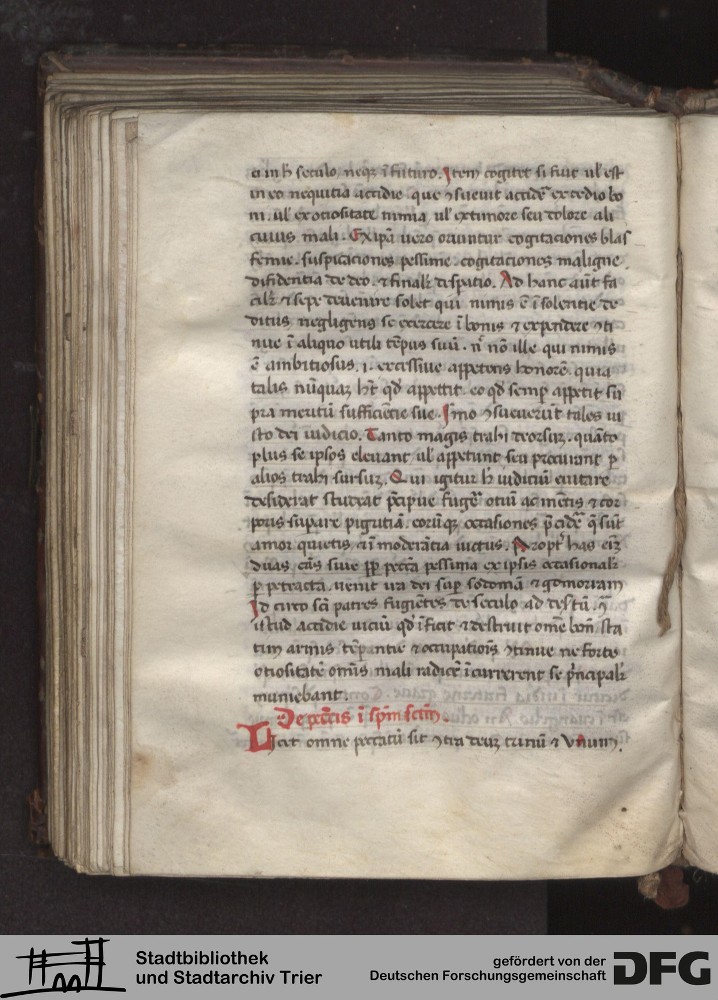 ci in h seculo, neqz ī futuro. Item cogitet si fuit ul est
in eo nequitia accidie. que ꝯsueuit accidē ex tedio bo
ni. ul ex ociositate nimia ul ex timore seu dolore ali
cuius mali. Ex ipā uero oriuntur cogitaciones blas
femie. suspicaciones pessime. cogitaciones maligne
difidentia de deo. et finalꝭ despatio. Ad hanc aūt fa
cilꝭ et sepe deuenire solet qui nimis ē īsolentie de
ditus negligens se exercere ī bonis et expendere ꝯti
nue ī aliquo utili tēpus suū. nͨ nō ille qui nimis
ē ambitiosus. i. excessiue appetens honorē. quia
talis nūquaꝫ hꝫ qd appetit eo qd semp appetit su
pra meritū sufficiētie sue. Imo ꝯsueuerūt tales iu
sto dei iudicio. Tanto magis trahi deorsuꝫ. quāto
plus se ipsos eleuant ul appetunt seu procurant p
alios trahi sursuꝫ. Qui igitur h iudiciū euitare
desiderat studeat pcipue fugēꝭ otiū ac mētis et cor
poris supare pigritiā. eorūqꝫ occasiones pcidē q sūt
amor quietis et īmoderātia uictus. Propt has eīꝫ
duas cās siue pp pccta pessima ex ipsis occasionalꝭ
p petracta. uenit ira dei sup sodomā et gomorram
Id circo sci patres fugiētes de seculo ad destū
istud accidie uiciū qd īficit et destruit omē bonū sta
tim armis tēpantie et occupationis ꝯtinue ne forte
otiositatē omīs mali radicē īcurrerent se pncipalꝭ
muniebant.
De pcctis ī spm sctm.
Licet omne peccatū sit ꝯtra deuꝫ trinū et Vnum.
Stadtbibliothek
und Stadtarchiv Trier
gefördert von der
Deutschen Forschungsgemeinschaft
DFG